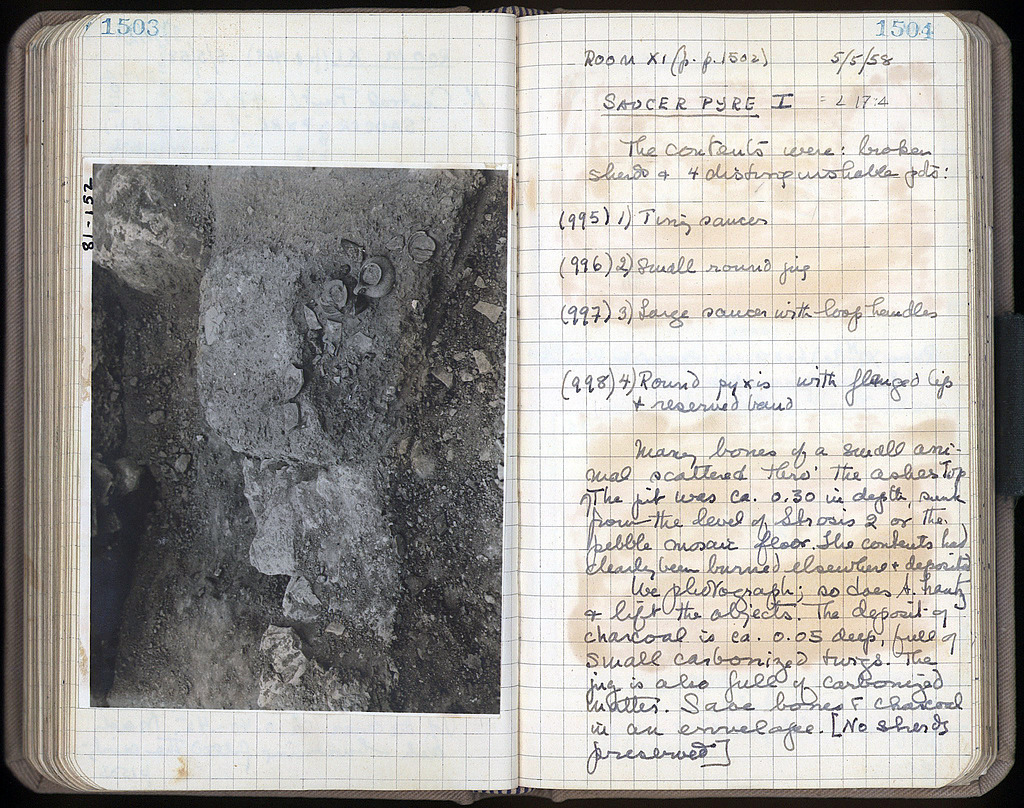 1503
81-152
1504
Room XI (p. p. 1502) 5/5/58
SAUCER PYRE I = L 17:4
The contents were: broken
sherds + 4 distinguishable pots:
(995) 1) Tiny saucer
(996) 2) Small round jug
(997) 3) Large saucer with loop handles
(998) 4) Round pyxis with flanged lip
+ reserved band
Many bones of a small ani-
mal scattered thro' the ashes. Top
of The pit was ca. 0.30 in depth, sunk
from the level of Strosis 2 or the
pebble mosaic floor. The contents had
clearly been burned elsewhere + deposited
We photograph; so does A. Frantz
+ lift the objects. The deposit of
charcoal is ca. 0.05 deep, full of
small carbonized twigs. The
jug is also full of carbonized
matter. Save bones & charcoal
in an envelope. [No sherds
preserved]